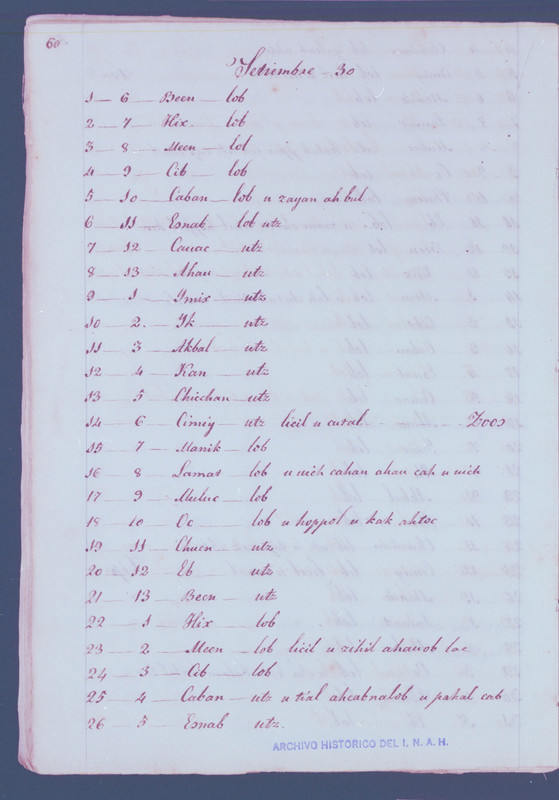 60
Setiembre 30
1 — 6 — Been — lob
2 — 7 — Hix. — lob
3 — 8 — Meen — lol
4 — 9 — Cib — lob
5 — 10 — Caban — lob u zayan ah bul
6 — 11 — Esnab — lob utz
7 — 12 — Cauac — utz
8 — 13 — Ahau — utz
9 — 1 — Ymix — utz
10 — 2. — Yk — utz
11 — 3 — Akbal — utz
12 — 4 — Kan — utz
13 — 5 — Chicchan — utz
14 — 6 — Cimiy — utz licil u cutal — Zooo
15 — 7 — Manik — lob
16 — 8 — Lamat — lob u uich cahan ahau cah u uich
17 — 9 — Muluc — lob
18 — 10 — Oc — lob u hoppol u kak ahtoc
19 — 11 — Chuen — utz
20 — 12 — Eb — utz
21 — 13 — Been — utz
22 — 1 — Hix — lob
23 — 2 — Meen — lob licil u zihil ahauob lae
24 — 3 — Cib — lob
25 — 4 — Caban — utz u tial ahcabnalob u pakal cab
26 — 5 — Esnab — utz.
ARCHIVO HISTORICO DEL I. N. A. H.